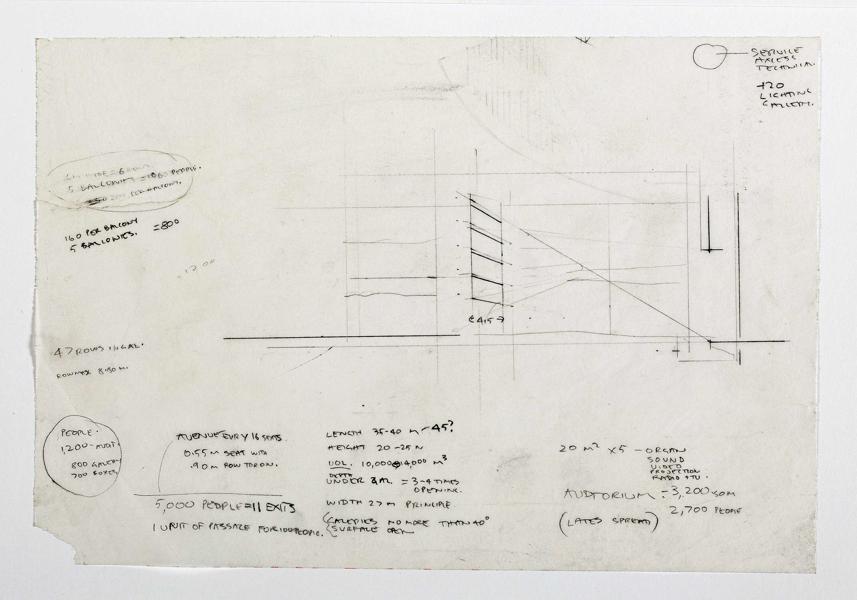 SERVICE
ACCESS
TECHNICAL
+20
LIGHTING
GALLERY.
5 BALCONIES = 1060 PEOPLE.
200 PER BALCONY.
160 PER BALCONY = 800
5 BALCONIES.
4.5
47 ROWS
8.50 M.
PEOPLE.
1,200 - AUDIT.
800 GALLERY
700 BOXES
AVENUE EVRY 16 SEATS.
0.55M SEAT WITH
.90M ROW TO ROW.
5,000 PEOPLE = 11 EXITS
1 UNIT OF PASSAGE FOR 100 PEOPLE.
LENGTH 35-40 M - 45?
HEIGHT 20-25 M
VOL. 10,000 14,000 M³
DEPTH
UNDER BAL = 3-4 TIMES
OPENING.
WIDTH 27 M PRINCIPLE
(GALERIES NO MORE THAN 40°
SURFACE OPEN
20 M² X 5 - ORGAN
SOUND
VIDEO
PROJECTION
RADIO STU.
AUDTORIUM = 3,200 SQM
2,700 PEOPLE
(LATES SPREAD)